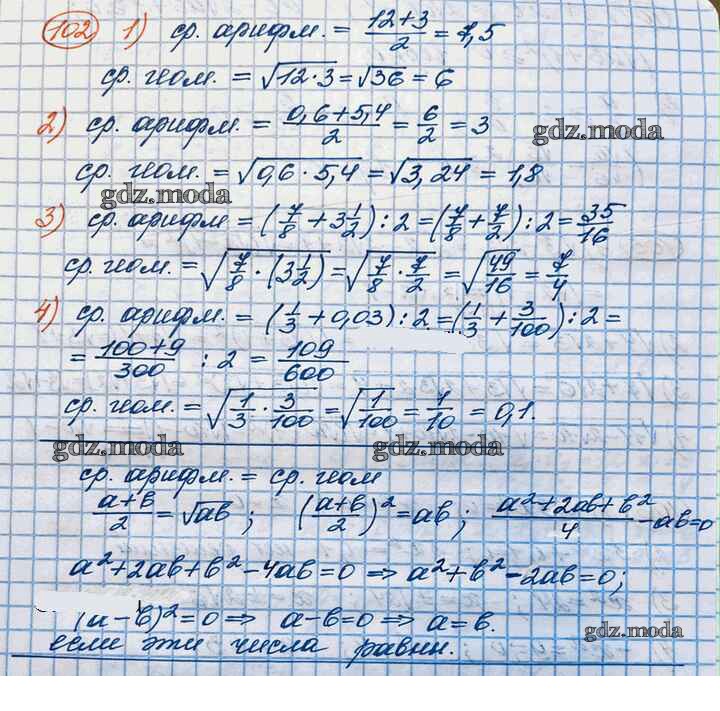 102 1) ср. арифм. = (12+3)/2 = 7,5
ср. геом. = √(12·3) = √36 = 6
2) ср. арифм. = (0,6+5,4)/2 = 6/2 = 3
gdz.moda
ср. геом. = √(0,6·5,4) = √(3,24) = 1,8
gdz.moda
3) ср. арифм = (7/8 + 3 1/2) : 2 = (7/8 + 7/2) : 2 = 35/16
ср. геом. = √(7/8 · (3 1/2)) = √(7/8 · 7/2) = √(49/16) = 7/4
4) ср. арифм. = (1/3 + 0,03) : 2 = (1/3 + 3/100) : 2 =
= (100+9)/300 : 2 = 109/600
ср. геом. = √(1/3 · 3/100) = √(1/100) = 1/10 = 0,1.
gdz.moda gdz.moda
ср. арифм. = ср. геом
(a+b)/2 = √ab ; ((a+b)/2)² = ab ; (a²+2ab+b²)/4 - ab=0
a²+2ab+b²-4ab=0 ⇒ a²+b²-2ab=0;
(a-b)²=0 ⇒ a-b=0 ⇒ a=b.
gdz.moda
если эти числа равны.